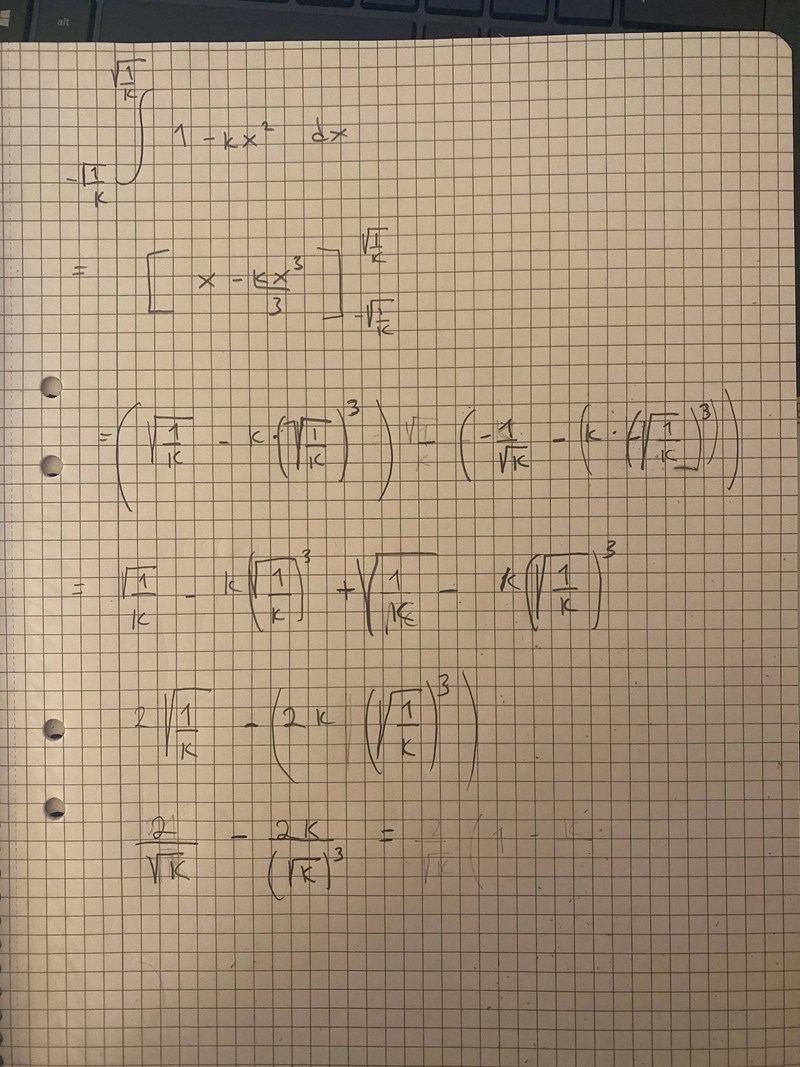 alt
∫_{-√(1/k)}^{√(1/k)} 1 - kx² dx
= [ x - kx³/3 ]_{-√(1/k)}^{√(1/k)}
= ( √(1/k) - k·(√(1/k))³ ) - ( -1/√k - ( k·(-√(1/k))³ ) )
= √(1/k) - k(√(1/k))³ + √(1/k) - k(√(1/k))³
2√(1/k) - ( 2k (√(1/k))³ )
2/√k - 2k/(√k)³ =